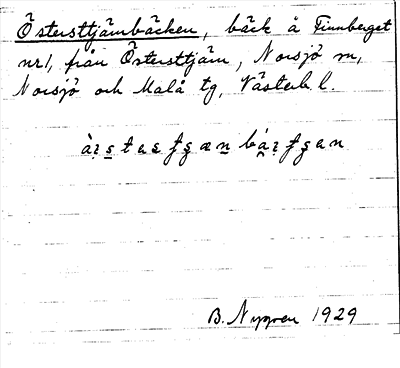 Östersttjämbäcken, bäck å Finnberget
nr1, från Östersttjärn, Norsjö sn,
Norsjö och Malå tg, Västerb. l.
B. Nygren 1929